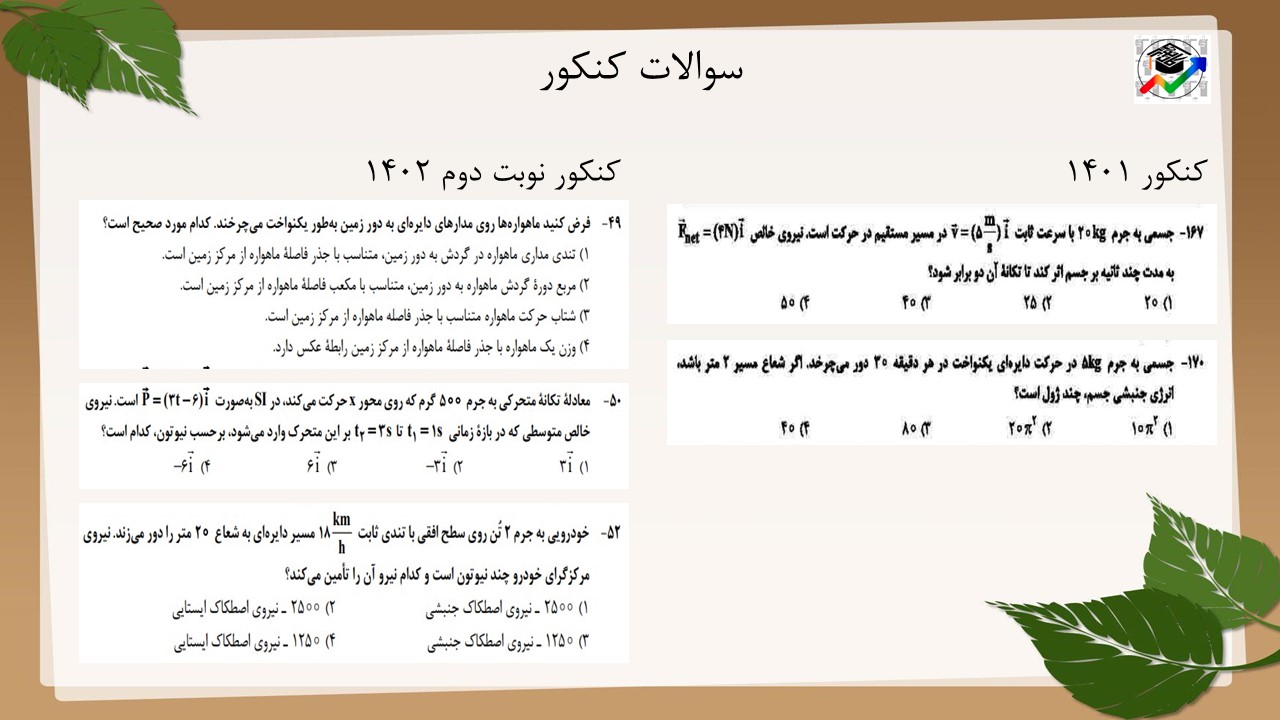 سوالات کنکور
کنکور ۱۴۰۱
۱۶۷- جسمی به جرم ۲۰kg با سرعت ثابت v⃗ = (۵ m/s) i⃗ در مسیر مستقیم در حرکت است. نیروی خالص F⃗net = (۴N) i⃗
به مدت چند ثانیه بر جسم اثر کند تا تکانهٔ آن دو برابر شود؟
۱) ۲۰ ۲) ۲۵ ۳) ۴۰ ۴) ۵۰
۱۷۰- جسمی به جرم ۵kg در حرکت دایره‌ای یکنواخت در هر دقیقه ۳۰ دور می‌چرخد. اگر شعاع مسیر ۲ متر باشد،
انرژی جنبشی جسم، چند ژول است؟
۱) ۱۰π² ۲) ۲۰π² ۳) ۸۰ ۴) ۴۰
کنکور نوبت دوم ۱۴۰۲
۴۹- فرض کنید ماهواره‌ها روی مدارهای دایره‌ای به دور زمین به‌طور یکنواخت می‌چرخند. کدام مورد صحیح است؟
۱) تندی مداری ماهواره در گردش به دور زمین، متناسب با جذر فاصلهٔ ماهواره از مرکز زمین است.
۲) مربع دورهٔ گردش ماهواره به دور زمین، متناسب با مکعب فاصلهٔ ماهواره از مرکز زمین است.
۳) شتاب حرکت ماهواره متناسب با جذر فاصله ماهواره از مرکز زمین است.
۴) وزن یک ماهواره با جذر فاصلهٔ ماهواره از مرکز زمین رابطهٔ عکس دارد.
۵۰- معادلهٔ تکانهٔ متحرکی به جرم ۵۰۰ گرم که روی محور x حرکت می‌کند، در SI به‌صورت P⃗ = (۳t − ۶) i⃗ است. نیروی
خالص متوسطی که در بازهٔ زمانی t₁ = ۱s تا t₂ = ۳s بر این متحرک وارد می‌شود، برحسب نیوتون، کدام است؟
۱) ۳i⃗ ۲) −۳i⃗ ۳) ۶i⃗ ۴) −۶i⃗
۵۲- خودرویی به جرم ۲ تُن روی سطح افقی با تندی ثابت ۱۸ km/h مسیر دایره‌ای به شعاع ۲۰ متر را دور می‌زند. نیروی
مرکزگرای خودرو چند نیوتون است و کدام نیرو آن را تأمین می‌کند؟
۱) ۲۵۰۰ ـ نیروی اصطکاک جنبشی ۲) ۲۵۰۰ ـ نیروی اصطکاک ایستایی
۳) ۱۲۵۰ ـ نیروی اصطکاک جنبشی ۴) ۱۲۵۰ ـ نیروی اصطکاک ایستایی